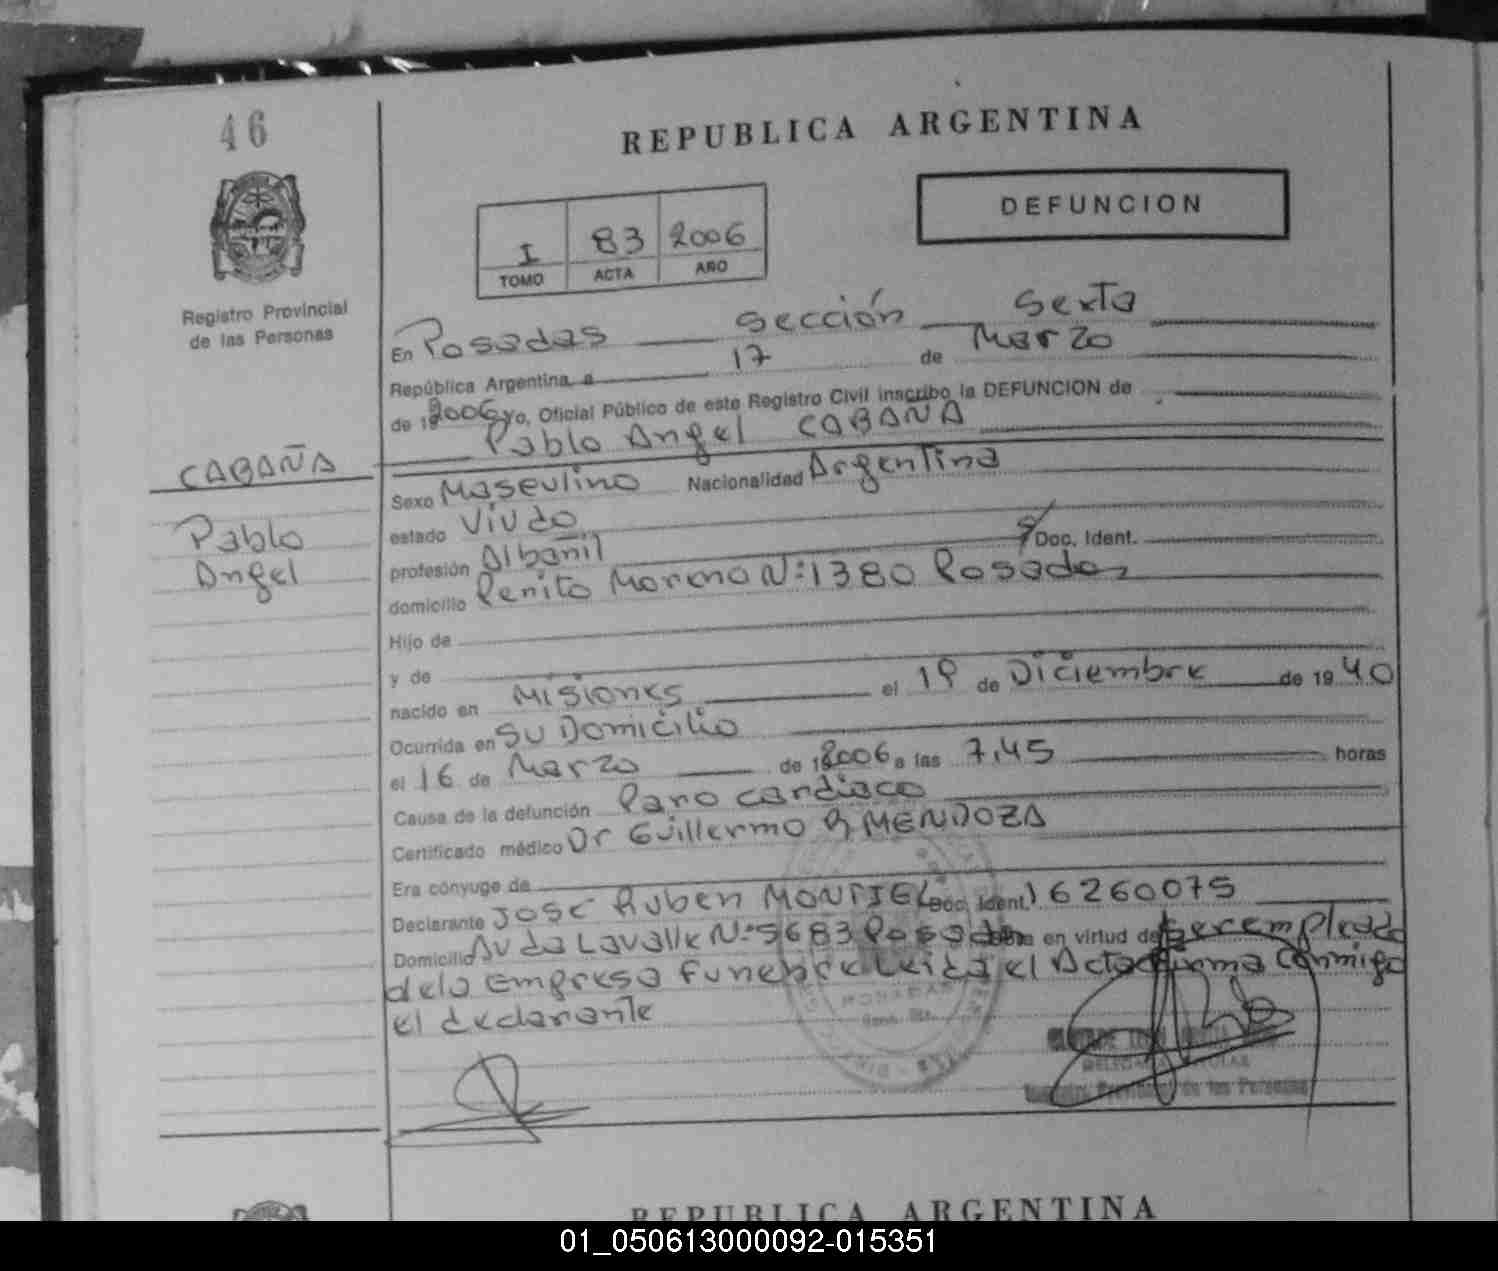 46
REPUBLICA ARGENTINA
DEFUNCION
I 83 2006
TOMO ACTA AÑO
Registro Provincial
de las Personas
En Posadas sección Sexta
República Argentina, a 17 de Marzo
de 192006 yo, Oficial Público de este Registro Civil inscribo la DEFUNCION de
Pablo Angel CABAÑA
CABAÑA
Pablo
Angel
Sexo Masculino Nacionalidad Argentina
estado Viudo
profesión Albañil S/Doc. Ident.
domicilio Perito Moreno N:1380 Posadas
Hijo de
y de
nacido en Misiones el 19 de Diciembre de 1940
Ocurrida en Su Domicilio
el 16 de Marzo de 192006 a las 7,45 horas
Causa de la defunción Paro cardiaco
Certificado médico Dr Guillermo R MENDOZA
Era cónyuge de
Declarante José Ruben MONTIEL Doc. Ident. 16260075
Domicilio Avda Lavalle N:5683 Posadas en virtud de ser empleado
de la Empresa funebre Leida el Acta firma conmigo
el declarante
de las Personas
REPUBLICA ARGENTINA
01_050613000092-015351